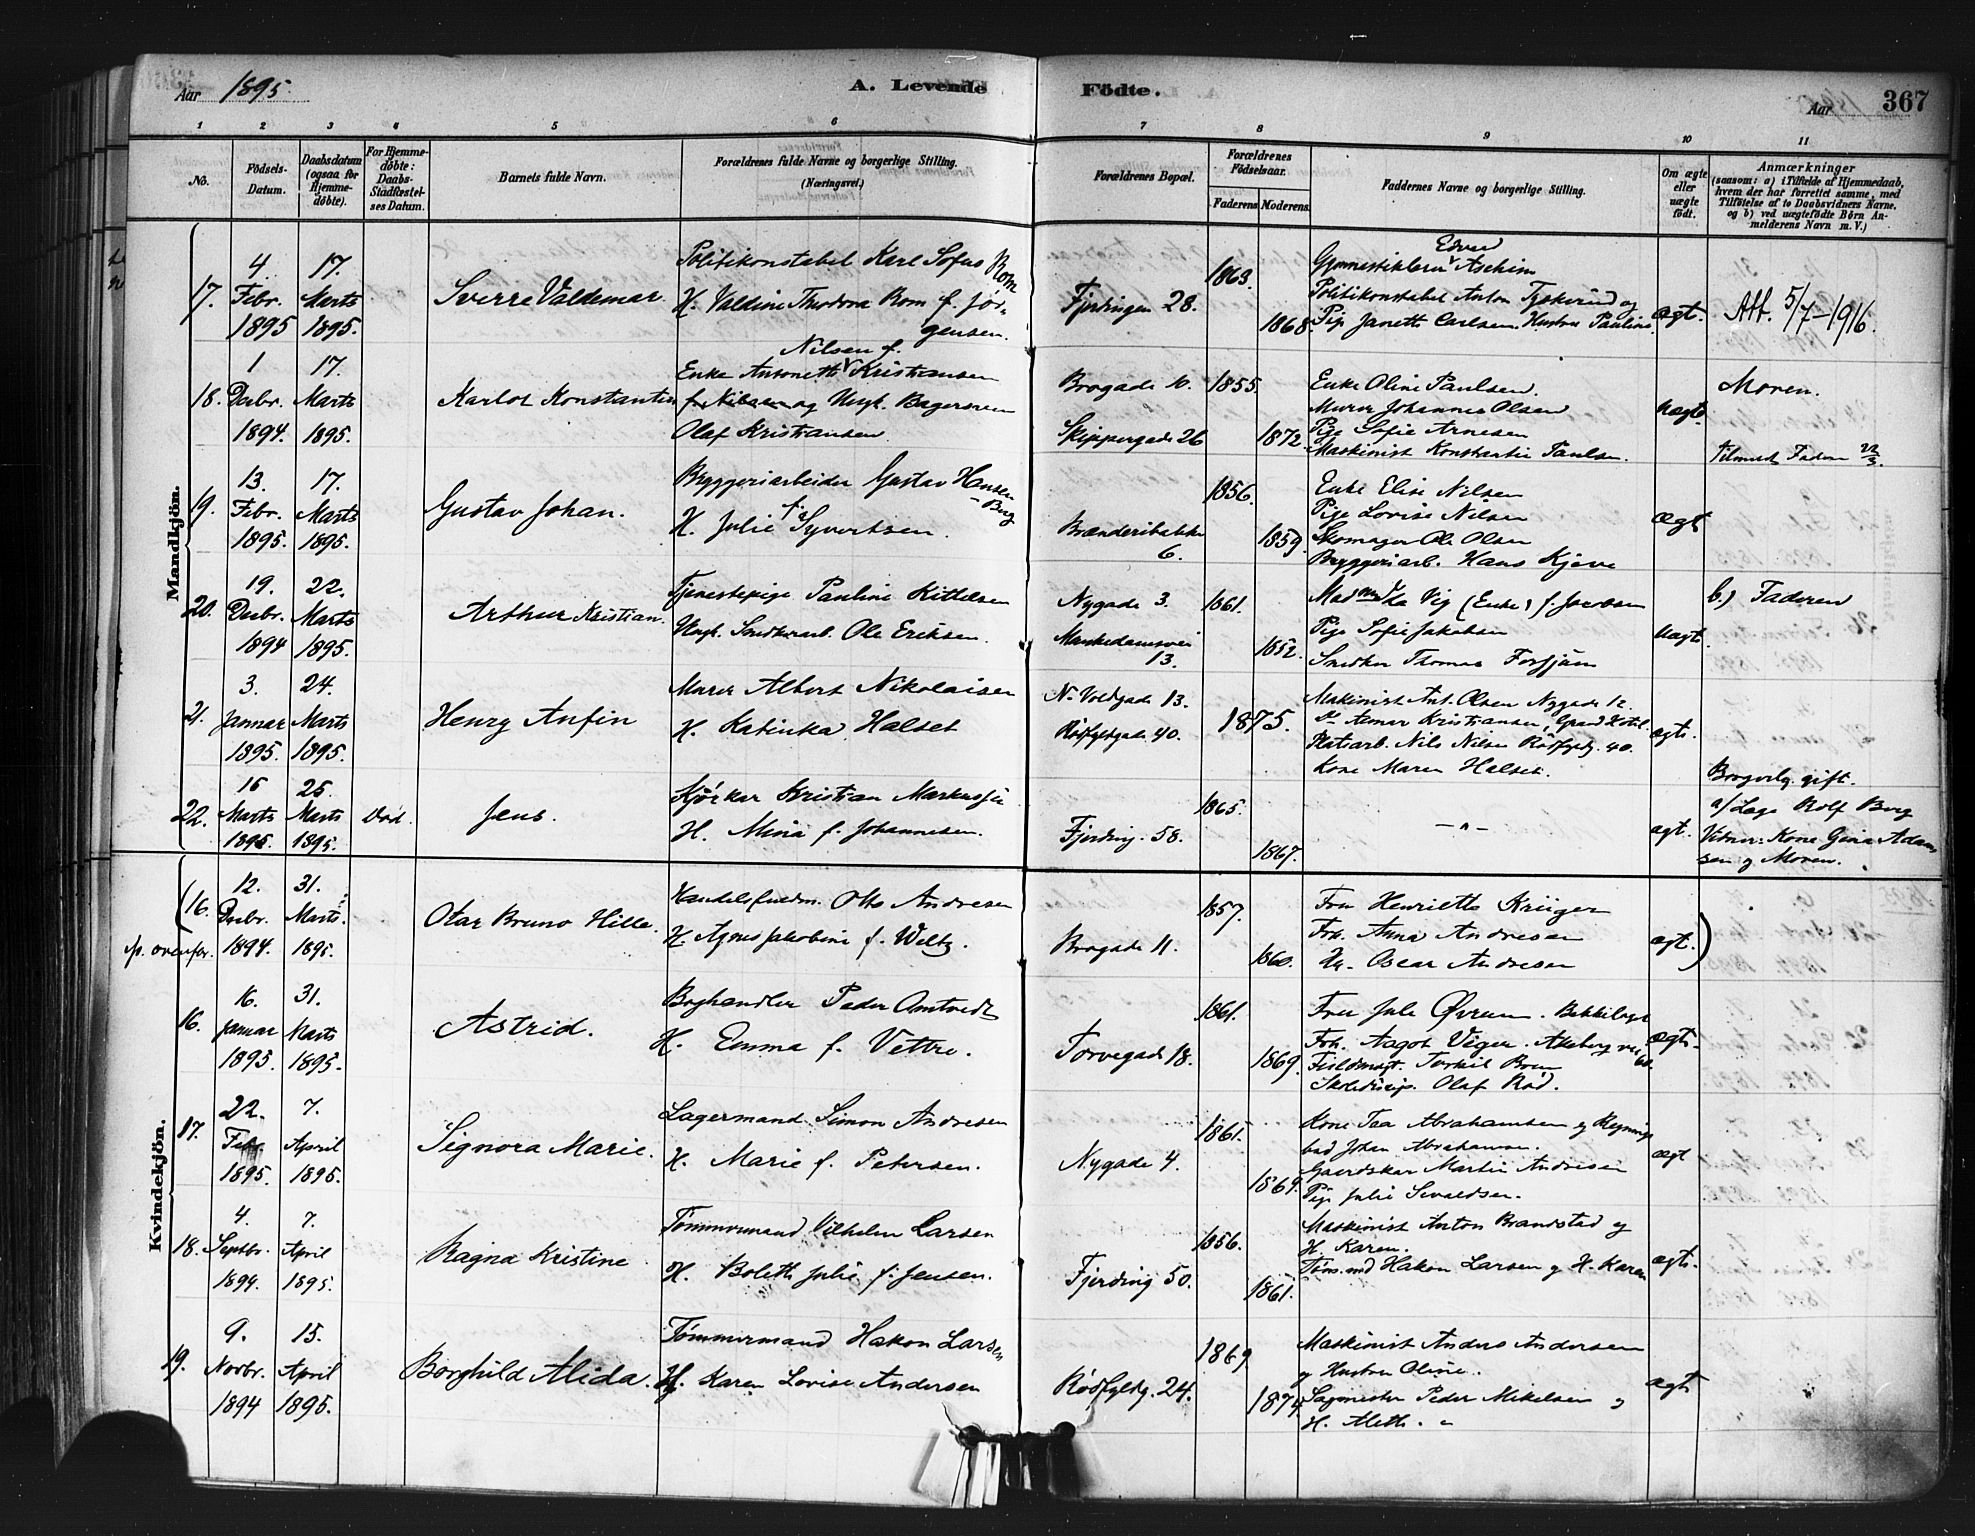 Aar 1895.
A. Levende Födte.
Aar
367
1 2 3 4 5 6 7 8 9 10 11
No.
Födsels-Datum.
Daabsdatum (ogsaa for Hjemme-döbte).
For Hjemme-döbte: Daabs-Stadfæstel-ses Datum.
Barnets fulde Navn.
Forældrenes fulde Navne og borgerlige Stilling.
(Næringsvei.)
Forældrenes Bopæl.
Forældrenes Födselsaar.
Faderens. Moderens.
Faddernes Navne og borgerlige Stilling.
Om ægte eller uægte födt.
Anmærkninger
(saasom: a) i Tilfælde af Hjemmedaab,
hvem der har forrettet samme, med
Tilföielse af to Daabsvidners Navne,
og b) ved uægtefödte Börn An-
melderens Navn m. V.)
Mandkjön.
17.
4. Febr. 1895
17. Marts 1895.
Sverre Valdemar.
Politikonstabel Karl Sofus Rom
H. Valdine Theodora Rom f. Jör-
gensen.
Fjerdingen 28.
1863.
1868.
Edvard
Gymnastiklærer Aschim
Politikonstabel Anton og
Pige Janette Carlsen. Hustru Pauline
ægt.
Att. 5/7-1916.
18.
1 Decbr. 1894.
17. Marts 1895.
Karlot Konstantin
Nilsen f.
Enke Antonette Kristiansen
f. Nilsen og Ungk. Bagersvenn
Olaf Kristiansen.
Brogade 10.
Skippergade 26
1855.
1872.
Enke Oline Paulsen.
Murer Johannes Olsen
Pige Sofie Arnesen
Maskinist Konstantin Paulsen.
Uægte
Moren.
Faderen 22/3.
19.
13. Febr. 1895.
17. Marts 1895.
Gustav Johan.
Bryggeriarbeider Gustav Hansen
Berg
H. Julie f. Syvertsen.
Brænderibakken
6.
1856.
1859.
Enke Elise Nilsen
Pige Lovise Nilsen
Skomager Ole Olsen
Bryggeriarb. Hans Kjeve
Ægt
20.
19. Decbr. 1894
22. Marts 1895.
Arthur Kristian.
Tjenestepige Pauline Kittelsen
Ungk. Snedkerarb. Ole Eriksen.
Nygade 3.
Munkedamsvei
13.
1861.
1852.
Vig (Enke) f. Jacobsen
Pige Sofie Jakobsen
Snedker Thomas
Uægte
b.) Faderen
21.
3. Januar 1895.
24. Marts 1895.
Henry Anfin
Murer Albert Nikolaisen
H. Katinka Halset
N. Voldgade 13.
Rödfyldgade 40.
1875.
Maskinist Ant. Olsen Nygade 12
Kristiansen, Grand Hotel.
Pladsarb. Nils Nilsen Rödfyldg. 40.
Kone Maren Halset.
ægte.
22.
15 Marts 1895
25. Marts 1895.
Död.
Jens.
Kjörkar Kristian
H. Mina f. Johannesen.
Fjerding. 58.
1865.
1867.
- " -
ægt.
gift.
af Læge Rolf Berg
Vidner: Kone Gina Adam
sen og Moren.
Kvindekjön.
(16.
ovenfor.
12. Decbr. 1894.
31. Marts 1895.
Otar Bruno Hille.
Handelsfuldm. Otto Andresen
H. Agnes Jakobine f. Weltz.
Brogade 11.
1857.
1860.
Fru Henriette Krüger
Frk. Anna Andresen
Hr. Oscar Andresen
ægt.)
16.
16. Januar 1895.
31. Marts 1895.
Astrid.
Boghandler Peder Omtvedt
H. Emma f. Vettre.
Torvegade 18.
1861.
1869.
Fru Jula Øvrum. Bekkelaget
Frk. Aagot Veger.
Olaf Röd.
ægte.
17.
22. Febr. 1895.
7. April 1895.
Signora Marie.
Lagermand Simon Andresen
H. Marie f. Petersen.
Nygade 4.
1861.
1869.
Kone Taa Abrahamsen og
Johan Abrahamsen.
Gaardskar Martin Andresen
Pige Julie Sivaldsen.
ægt
18.
4. Septbr. 1894.
7. April 1895.
Ragna Kristine
Tömmermand Vilhelm Larsen
H. Bolette Julie f. Jensen.
Fjerding 50.
1856.
1861.
Maskinist Anton Brandstad og
H. Karen.
Töm.md Hakon Larsen og H. Karen
ægte.
19.
9. Novbr. 1894
15. April 1895.
Borghild Alida.
Tömmermand Hakon Larsen
H. Karen Lovise Andersen
Rödfyldg. 24.
1869
1874.
Maskinist Anders Andersen
og Hustru Oline.
Sagmester Peder Mikelsen og
H. Alette. "
ægte